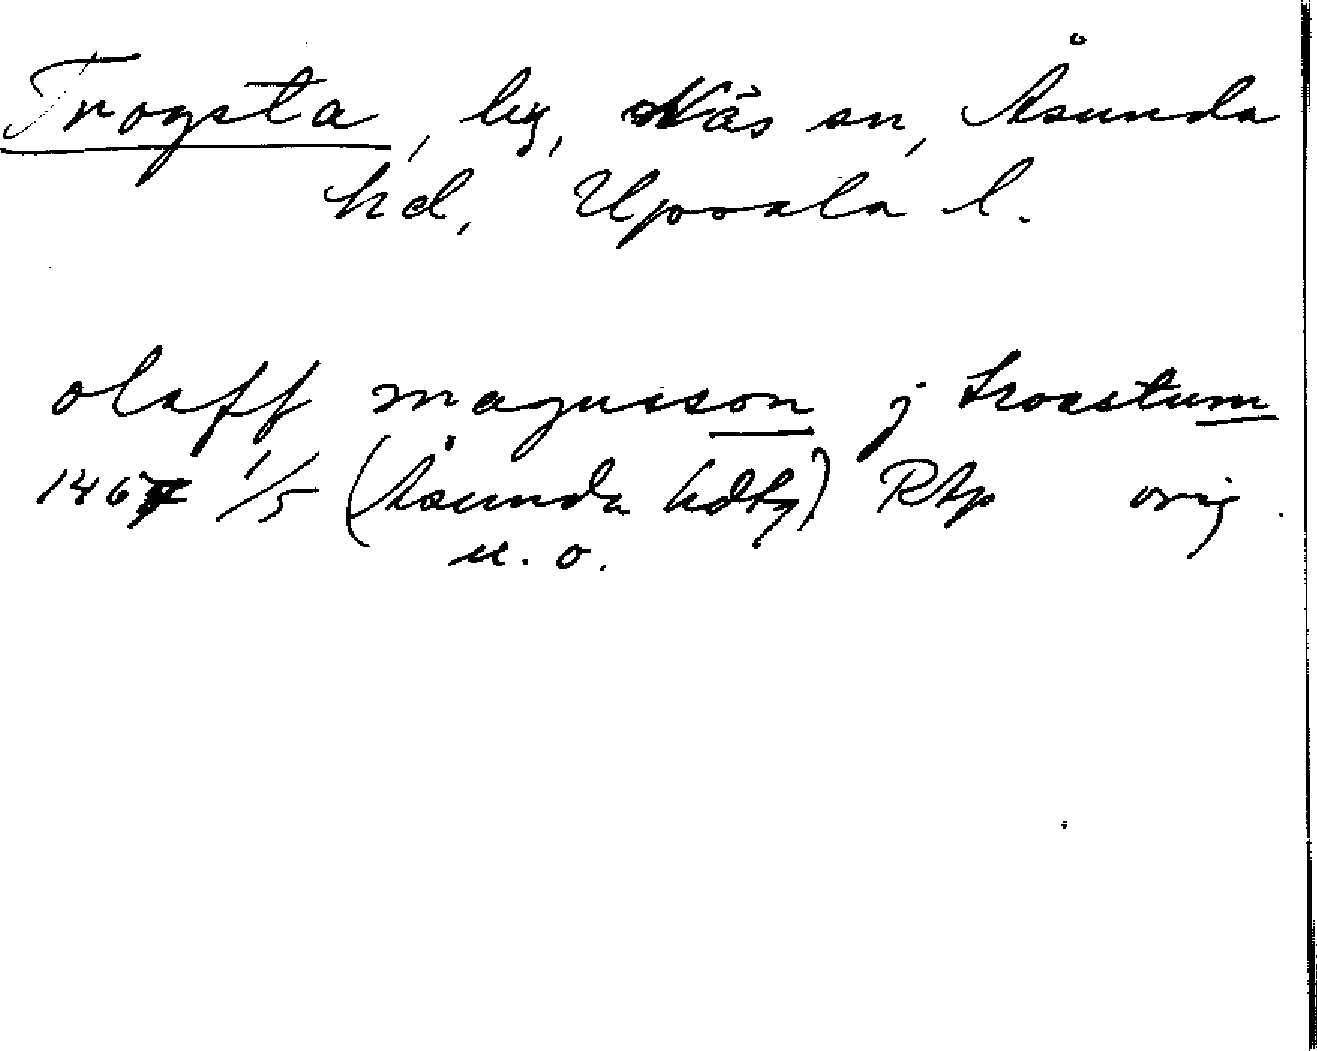 Trogsta, by, Näs sn, Åsunda
hd, Uppsala l.
olaff magnusson j troastum
1467 1/5 (Åsunda hdtg) RAp orig.
u. o.